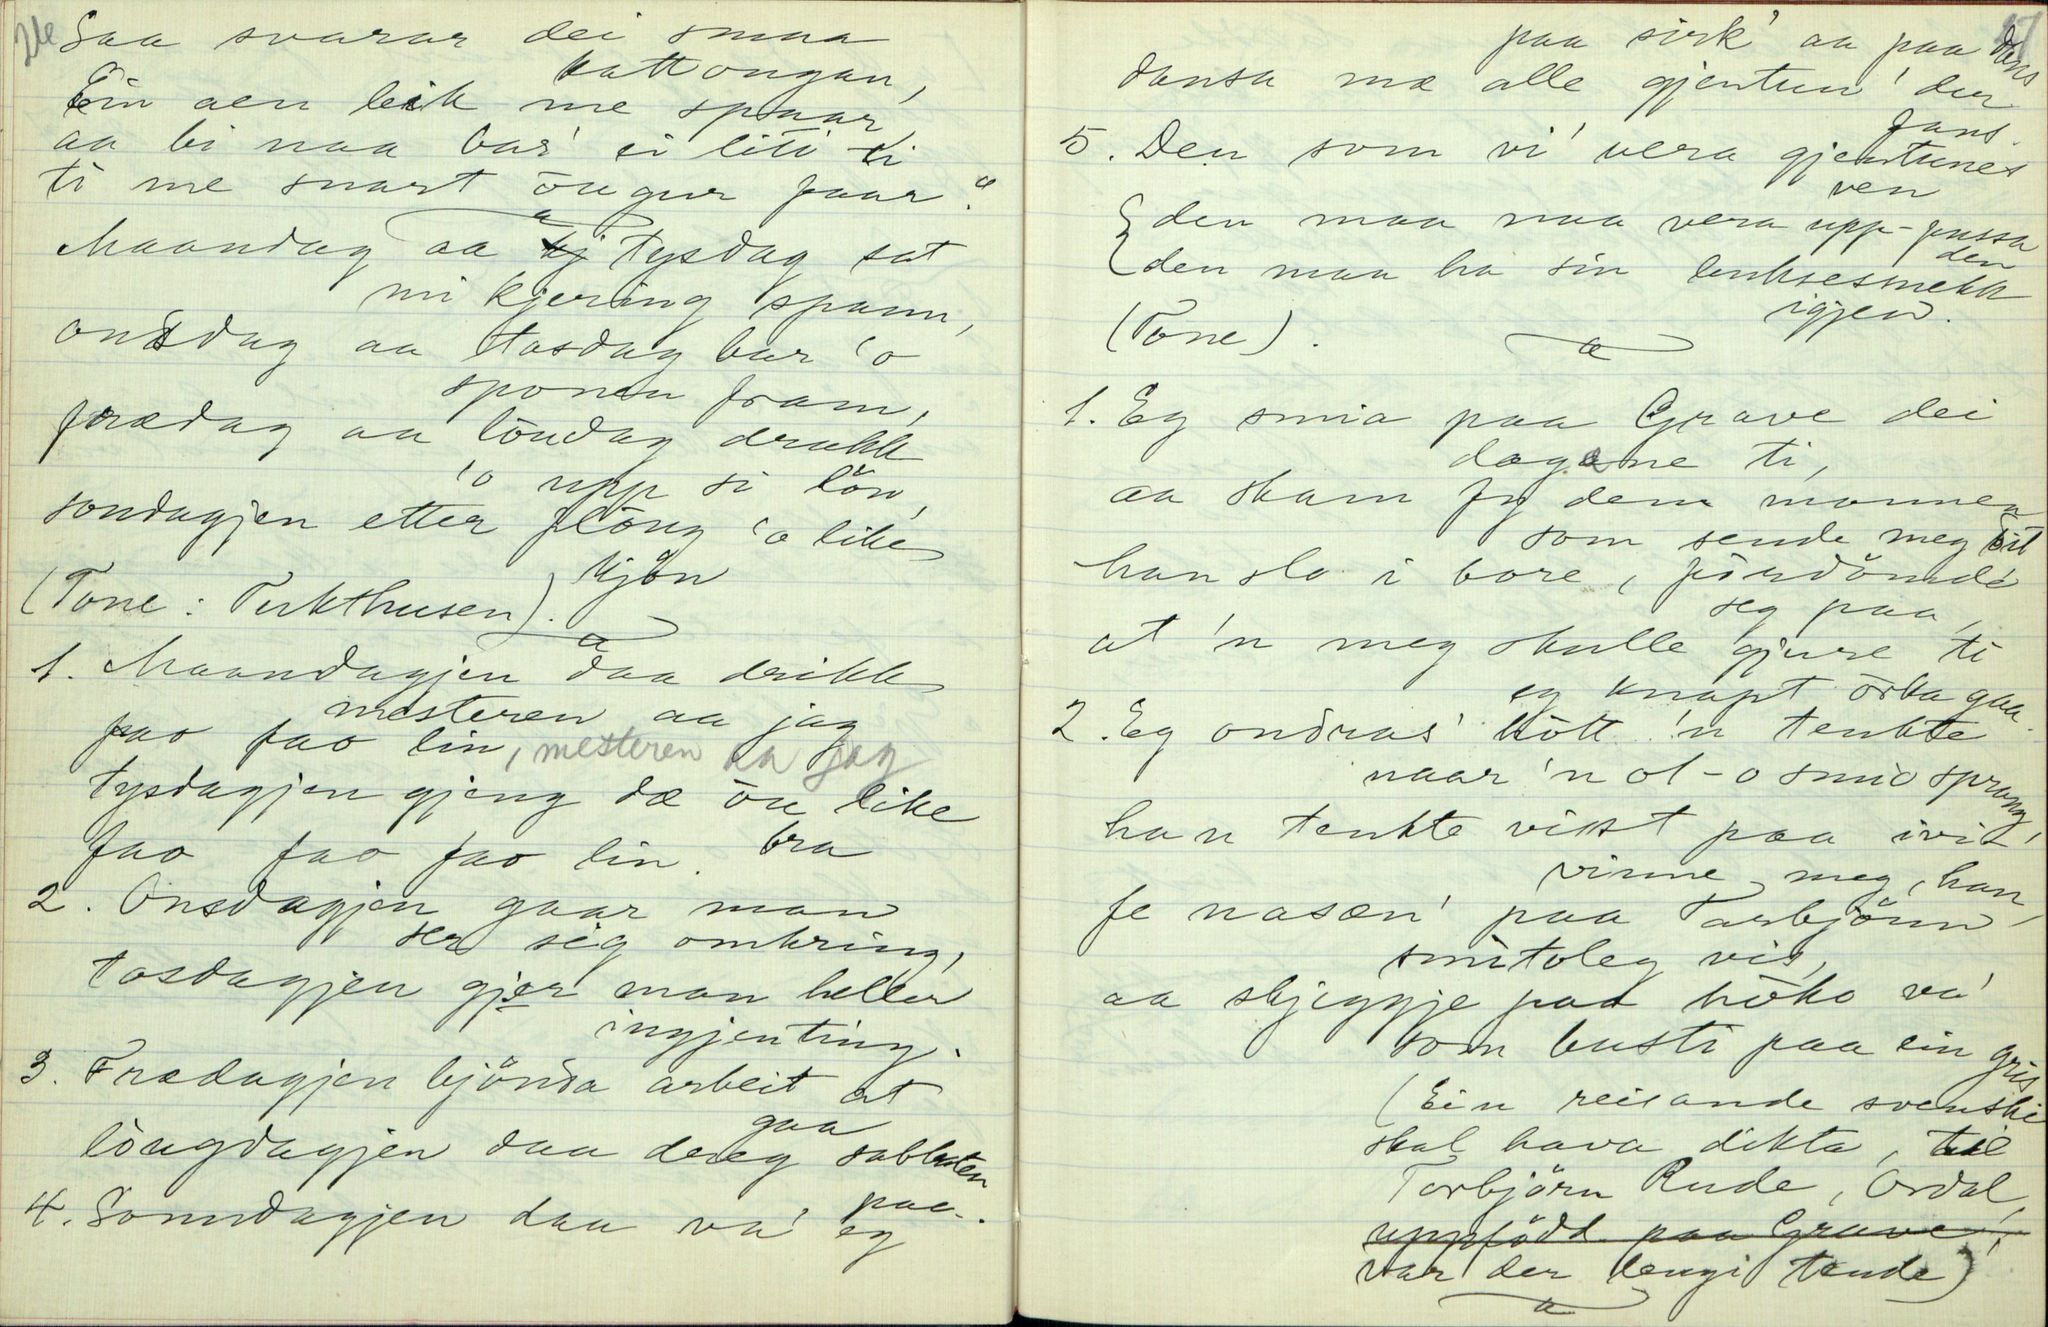 26
Saa svarar dei smaa
kattongan,
Ein aen leik me spaar,
aa bi naa bas' ei liti ti
ti me snart öngur faar."
Maandag aa tysdag sat
mi kjering spann,
onsdag aa tosdag bar 'o
sponen fram,
frædag aa löudag drakk
'o upp si lön,
sondagjen etter flöug 'o like
kjön
(Tone: Tukthusen).
1. Maandagjen daa drikk
mesteren aa jag
fao fao lin, mesteren aa jag
tysdagjen gjeng dæ öu like
bra
fao fao fao lin.
2. Onsdagjen gaar man
ser sig omkring,
tosdagjen gjer man heller
ingjenting.
3. Frædagjen bjönda arbeit at
gaa
löugdagjen daa dreg sabbaten
paa.
4. Sonndagjen daa va' eg
27
paa sirk' aa paa dans
dansa mæ alle gjentun' der
fans.
5. Den som vi' vera gjentunes
ven
den maa naa vera upp-passa
den
den maa ha sin buksesmekk
igjen.
(Tone).
1. Eg smia paa Grave dei
dagane ti,
aa skam fy dem mannen
som sende meg dit
han slo i bore, fördömde
seg paa,
at 'n meg skulle gjure ti
eg knapt örka gaa.
2. Eg ondras' hött 'n tenkte
naar 'n ot-o smio sprang,
han tenkte visst paa ivi'
vinne meg, han,
fe nasæn' paa Tarbjönn
smitoleg vis,
aa skjeggje paa höko va'
som busti paa ein gris
(Ein reisande svenske
skal hava dikta, til
Torbjörn Rude, Ordal,
uppfödd paa Grave,
var der lengi tende)